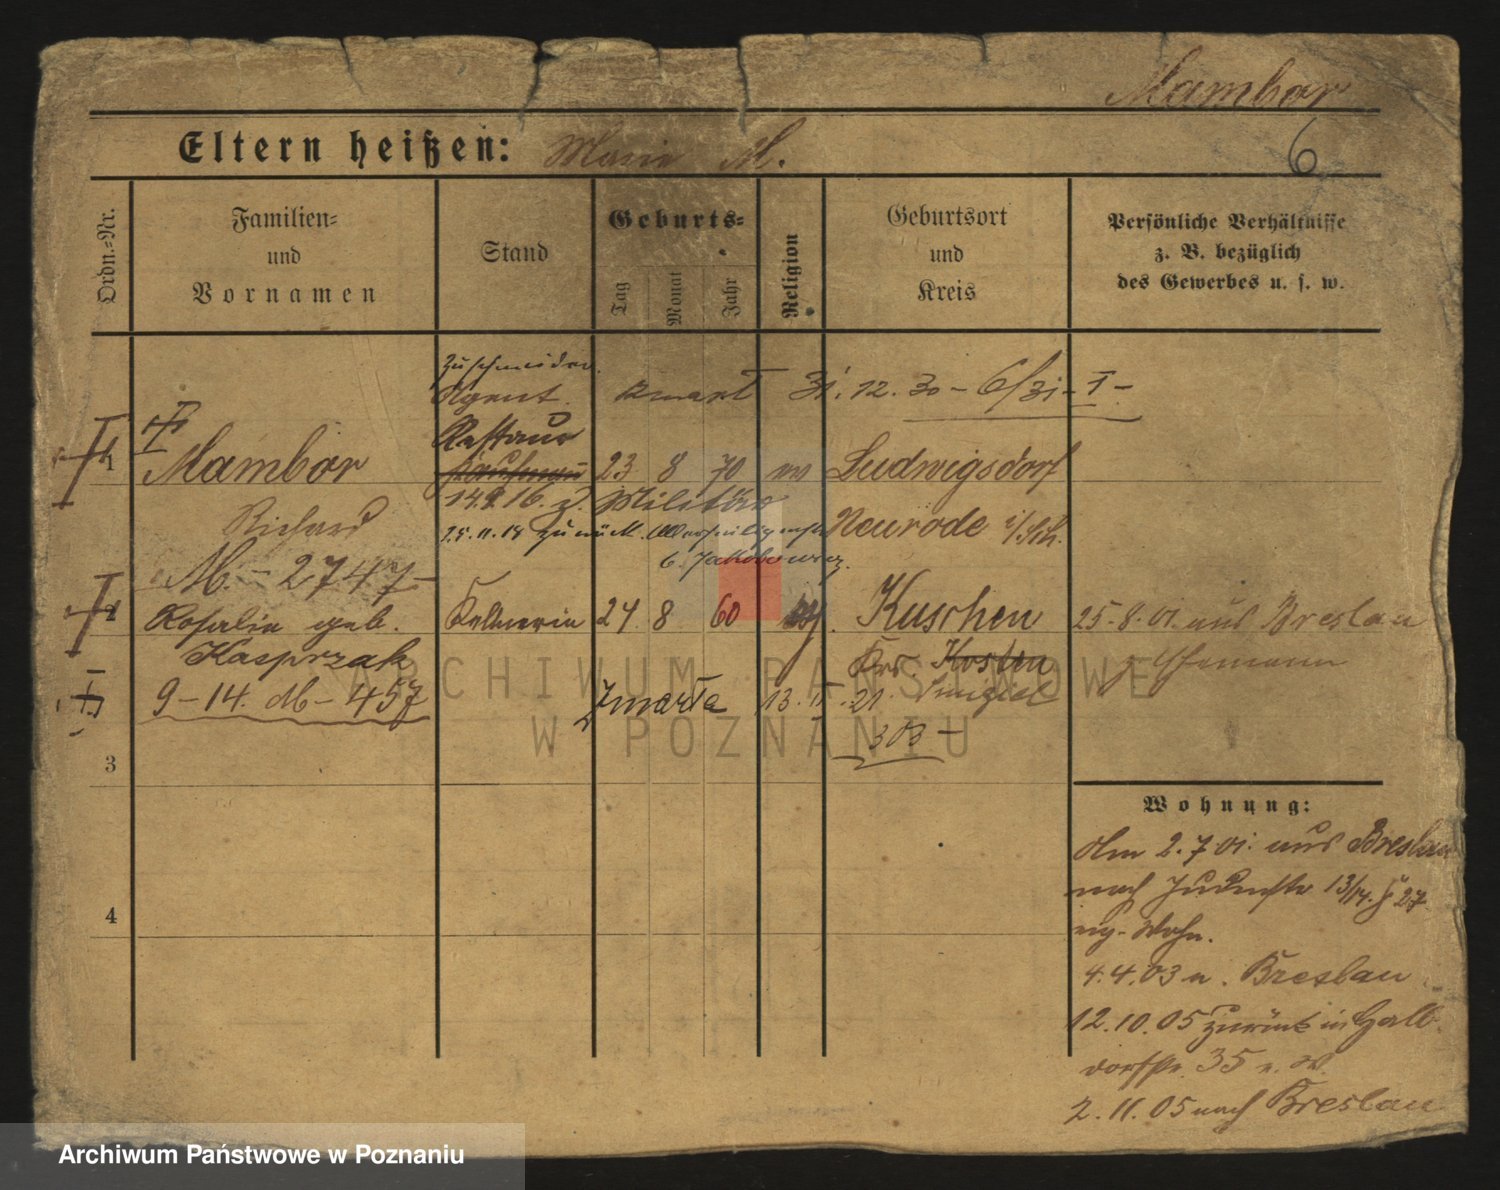 Mambor
Eltern heißen: Marie M.
6
Ordn.-Nr.
Familien-
und
Vornamen
Stand
Geburts-
Tag
Monat
Jahr
Religion
Geburtsort
und
Kreis
Persönliche Verhältnisse
z. B. bezüglich
des Gewerbes u. s. w.
Zuschneider
Agent. zmarł 31.12.30 – 6/31 – I –
Restaur
1 Mambor Kaufmann 23 8 70 Ludwigsdorf
Richard 16. z. Militär Neurode i/Sch.
25.11.18 zurück.
6. Jakobowicz.
M. – 2747 –
2 Rosalie geb. Kellnerin 24 8 60 Kuschen 25.8.01. aus Breslau
Kasprzak Krs. Kosten Ehemann
9 – 14. M – 457 zmarła 13. II. 21. Smigiel
303 –
3
4
Wohnung:
Am 2.7.01. aus Breslau
nach 13/14. 27
Wohn.
4.4.03 n. Breslau
12.10.05 zurück in Halb-
dorfstr. 35 n. W.
2.11.05 nach Breslau
ARCHIWUM PAŃSTWOWE
W POZNANIU
Archiwum Państwowe w Poznaniu